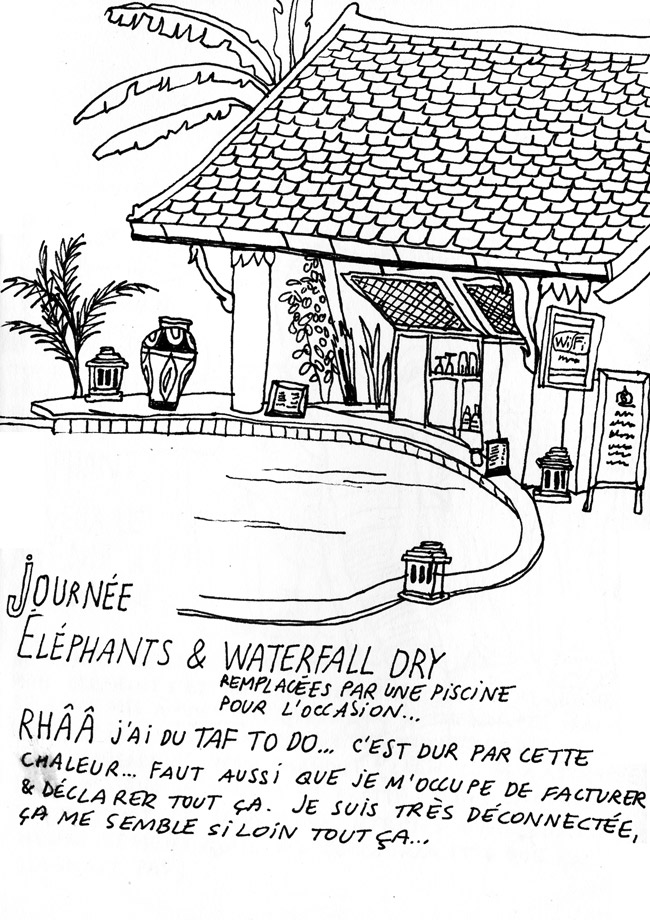 WiFi
JOURNÉE
ÉLÉPHANTS & WATERFALL DRY
REMPLACÉES PAR UNE PISCINE
POUR L'OCCASION...
RHÂÂ J'AI DU TAF TO DO... C'EST DUR PAR CETTE
CHALEUR... FAUT AUSSI QUE JE M'OCCUPE DE FACTURER
& DÉCLARER TOUT ÇA. JE SUIS TRÈS DÉCONNECTÉE,
ÇA ME SEMBLE SI LOIN TOUT ÇA...